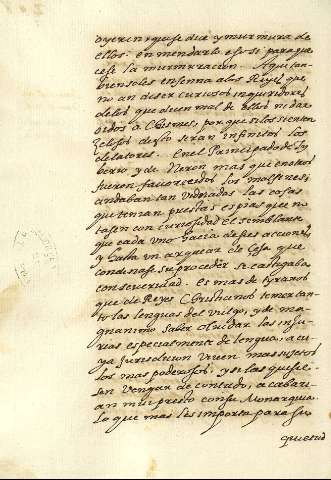 oyeren que se dice y murmura de
ellos: enmendarlo eso si para que
cese la murmuracion. Aqui tan
bien se les enseña a los Reyes que
no an de ser curiosos inquiridores
de los que dicen mal de ellos ni dar
oidos a Chismes, porque si los sienten
zelosos de esto seran infinitos los
delatores. En el Principado de Ty
berio, y de Neron mas que en otros
fueron favorecidos los malsines i
andaban tan vidriadas las cosas
que tenian puestas espias que no
tasen con curiosidad el semblante
que cada uno hacia de sus acciones,
y hasta un arquear de Ceja que
condenase su proceder se castigaba
con severidad. Es mas de tyranos
que de Reyes Christianos temer tan
to las lenguas del vulgo, y de ma
gnanimo saber olvidar las inju
rias especialmente de lengua, a cu
ya Jurisdicion viven mas sujetos
los mas poderosos, y si las quisie
san vengar de contado, acabari
an mui presto con su Monarquia.
Lo que mas les importa para su
quietud